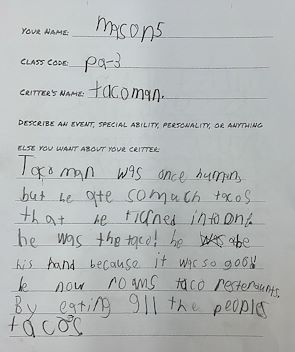 YOUR NAME: Mason S
CLASS CODE: pa-3
CRITTER'S NAME: tacoman.
DESCRIBE AN EVENT, SPECIAL ABILITY, PERSONALITY, OR ANYTHING
ELSE YOU WANT ABOUT YOUR CRITTER:
Taco man was once human,
but he ate somuch tacos
that he turned into one!
he was the taco! he ate
his hand because it was so good!
he now roams taco resteraunts.
By eating all the people
tacos